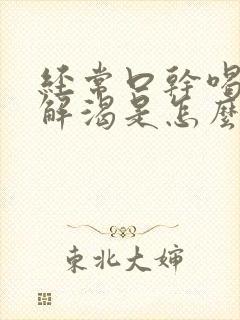 經常口幹喝
解渴是怎麼
東北大嬸